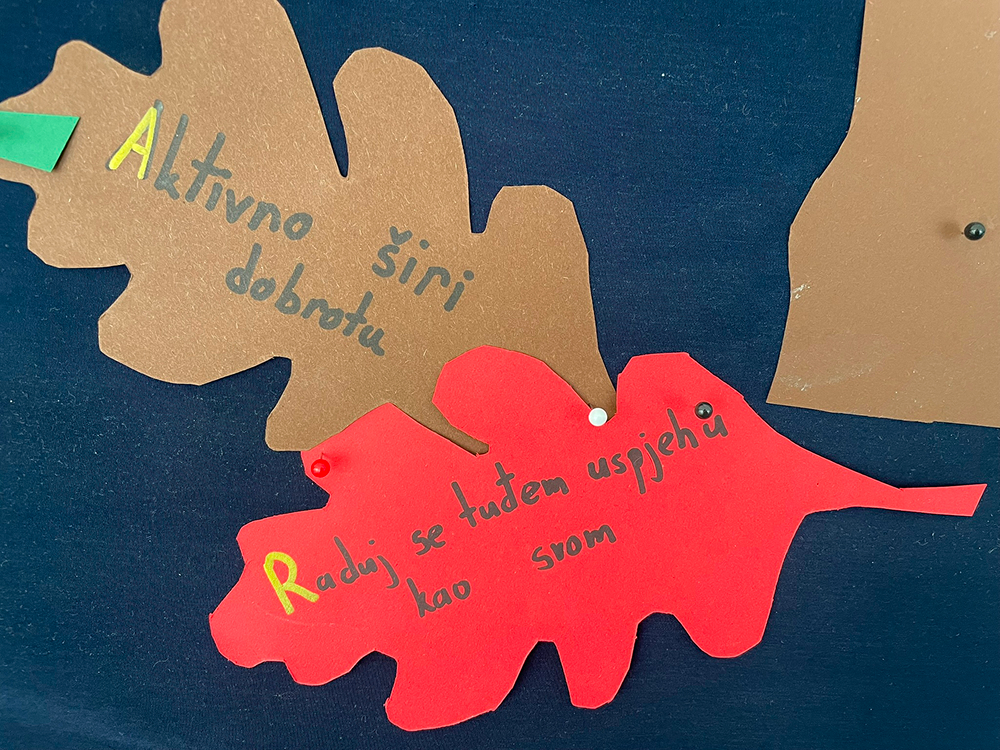 Aktivno širi
dobrotu
Raduj se tuđem uspjehu
kao svom